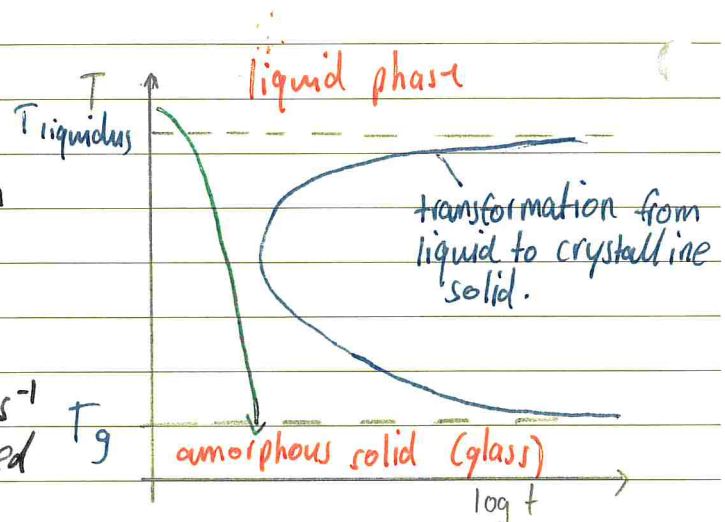 liquid phase
T
T liquidus
transformation from
liquid to crystalline
solid.
s⁻¹
Tg
ed
amorphous solid (glass)
log t